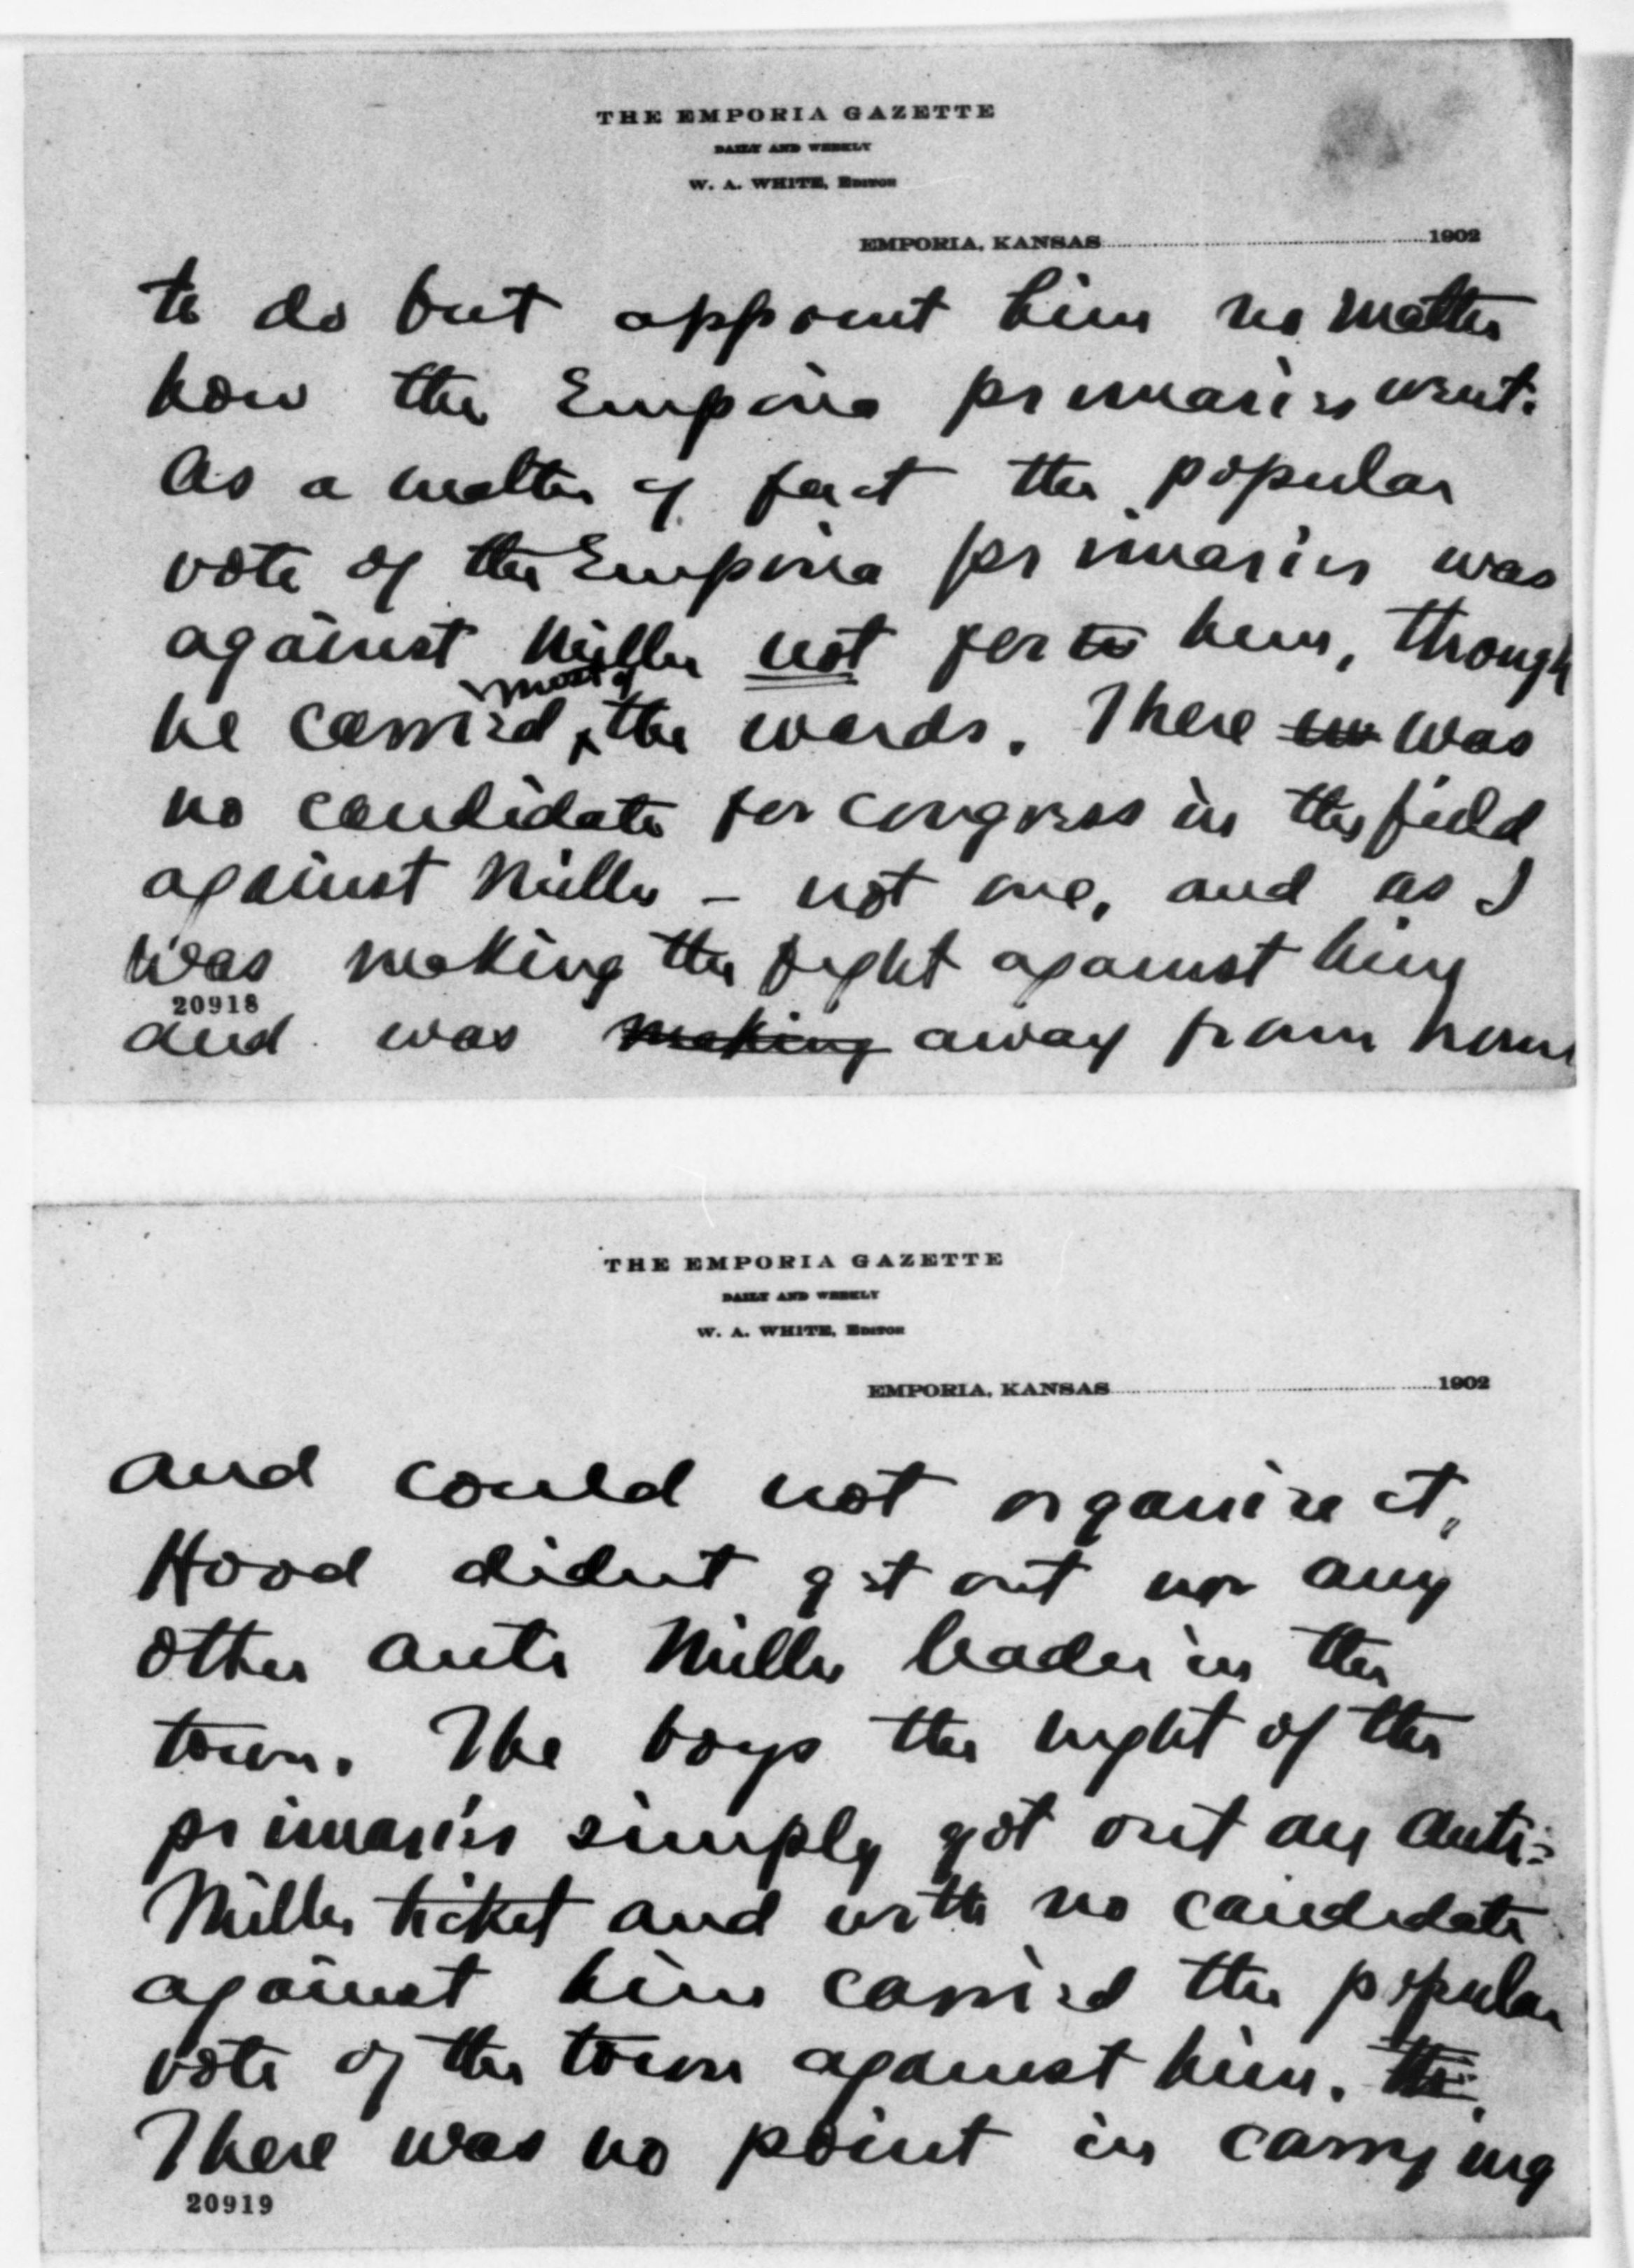 THE EMPORIA GAZETTE
DAILY AND WEEKLY
W. A. WHITE, EDITOR
EMPORIA, KANSAS 1902
to do but appoint him no matter
how the Emporia primaries went.
As a matter of fact the popular
vote of the Emporia primaries was
against Miller not for to him, though
most of
he carried ^ the wards. There was
no candidate for congress in the field
against Miller – not one, and as I
was making the fight against him
20918
and was making away from home
THE EMPORIA GAZETTE
DAILY AND WEEKLY
W. A. WHITE, EDITOR
EMPORIA, KANSAS 1902
and could not organize it,
Hood didnt get out nor any
other anti Miller leader in the
town. The boys the night of the
primaries simply got out an anti-
Miller ticket and with no candidate
against him carried the popular
vote of the town against him. The
There was no point in carrying
20919